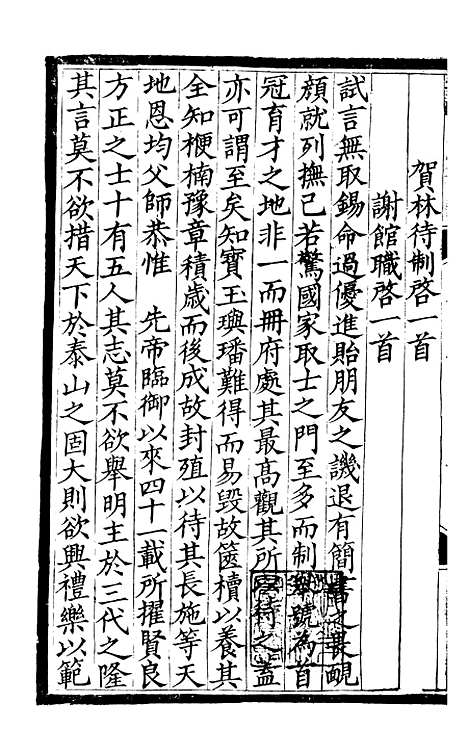 賀林待制啓一首
謝館職啓一首
試言無取錫命過優進貽朋友之譏退有簡書之畏靦
顔就列撫己若驚國家取士之門至多而制舉號為首
冠育才之地非一而冊府處其最高觀其所以待之蓋
亦可謂至矣知寶玉璵璠難得而易毀故篋櫝以養其
全知楩楠豫章積歲而後成故封殖以待其長施等天
地恩均父師恭惟 先帝臨御以來四十一載所擢賢良
方正之士十有五人其志莫不欲舉明主於三代之隆
其言莫不欲措天下於泰山之固大則欲興禮樂以範